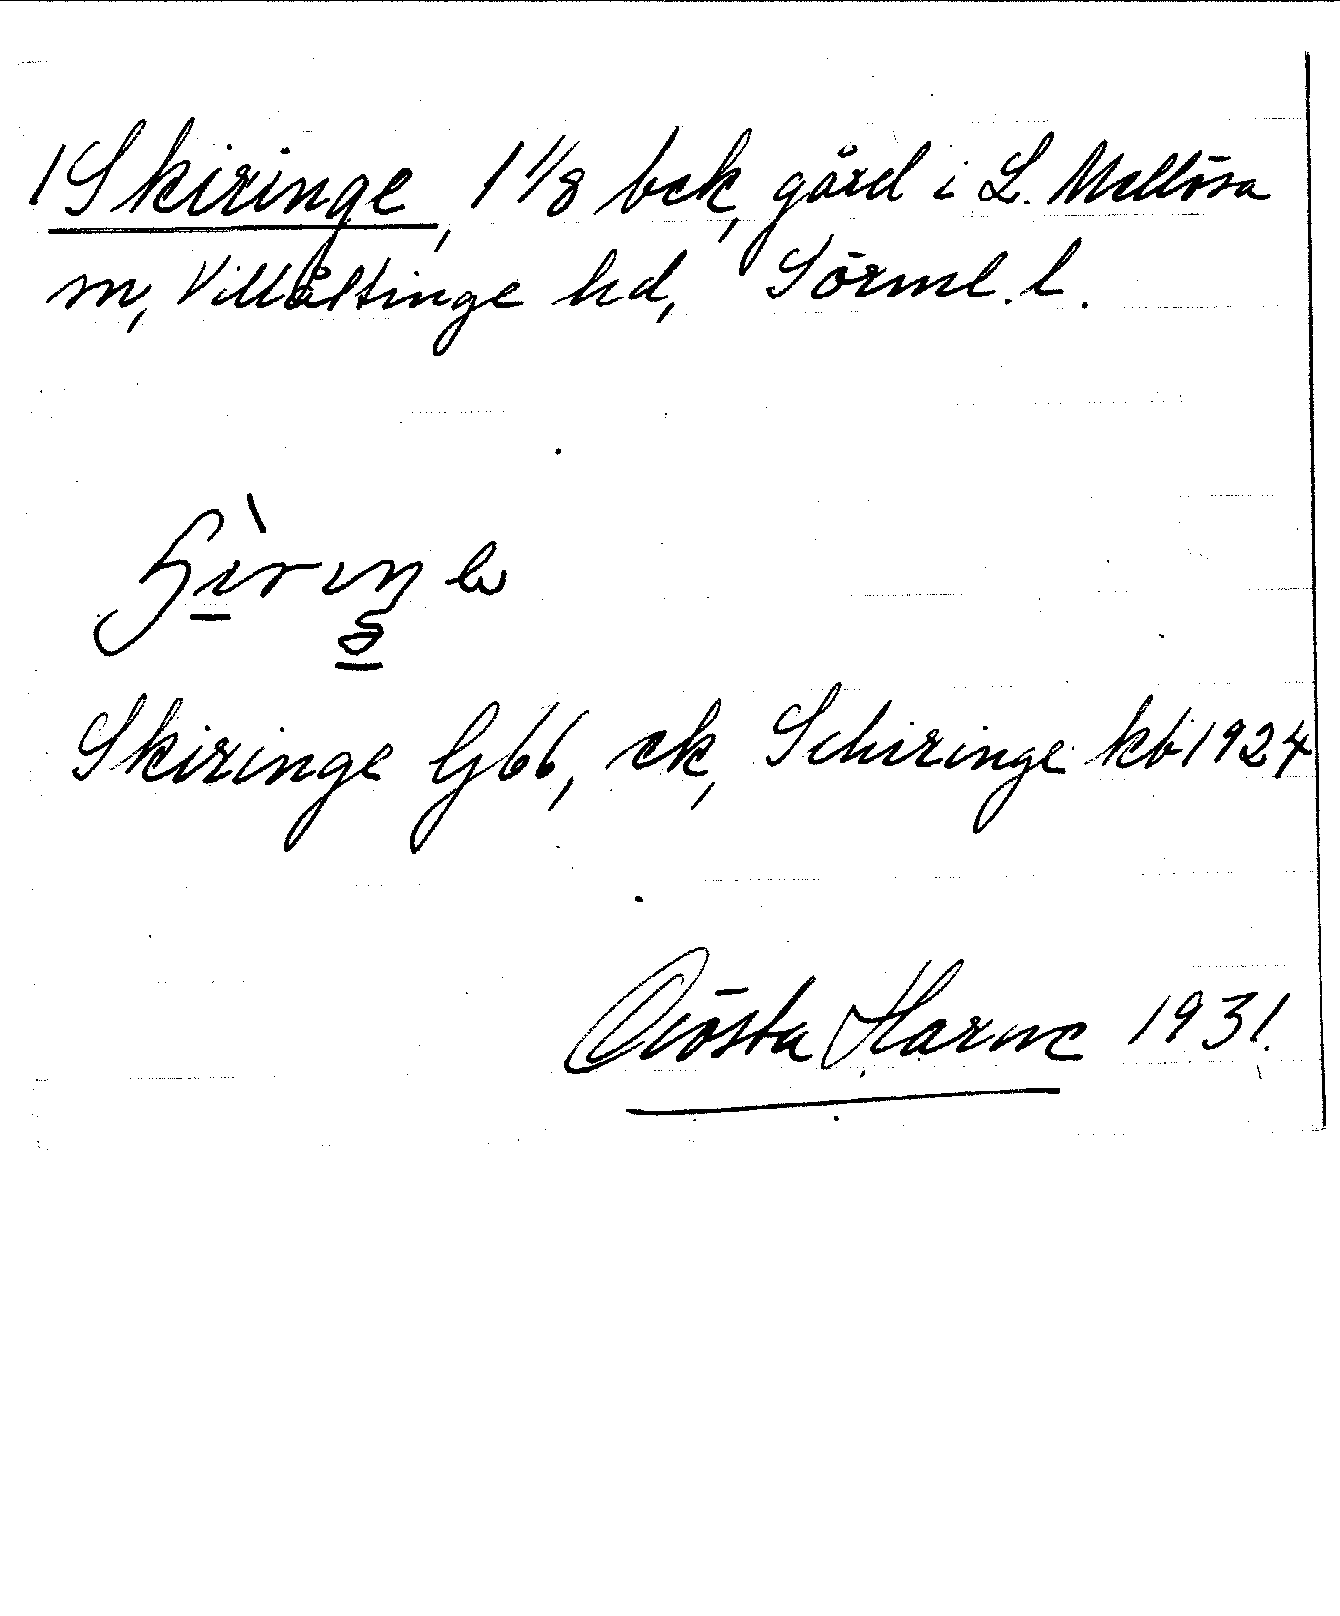 1 Skiringe, 1 1/8 bek, gård i L. Mellösa
sn, Villåttinge hd, Sörml. l.
Skiringe G 66, ek, Schiringe kb 1924
Gösta Harne 1931.